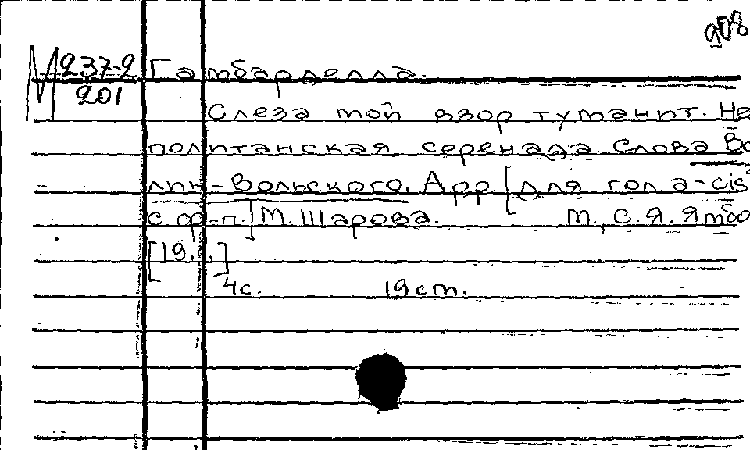 908
М 237-2
201
Гамбарделла.
Слеза мой взор туманит. Не
политанская серенада. Слова Во
лин-Вольского. Арр [для гол a-cis²
с ф.-п.] М. Шарова. М., С.Я. Ямбо
[19..]
4с. 19 см.